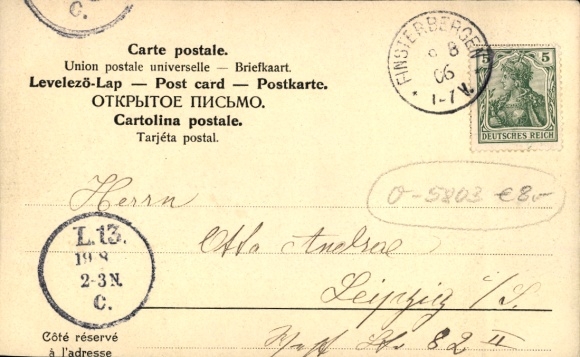 C.
Carte postale.
Union postale universelle — Briefkaart.
Levelezö-Lap — Post card — Postkarte.
ОТКРЫТОЕ ПИСЬМО.
Cartolina postale.
Tarjéta postal.
FINSTERBERGEN
8
06
* 1-7 V.
5 5
DEUTSCHES REICH
0-5803 €8,-
Herrn
Otto Andreae
Leipzig
82 II
L.13.
19 8
2-3 N.
C.
Côté réservé
à l'adresse